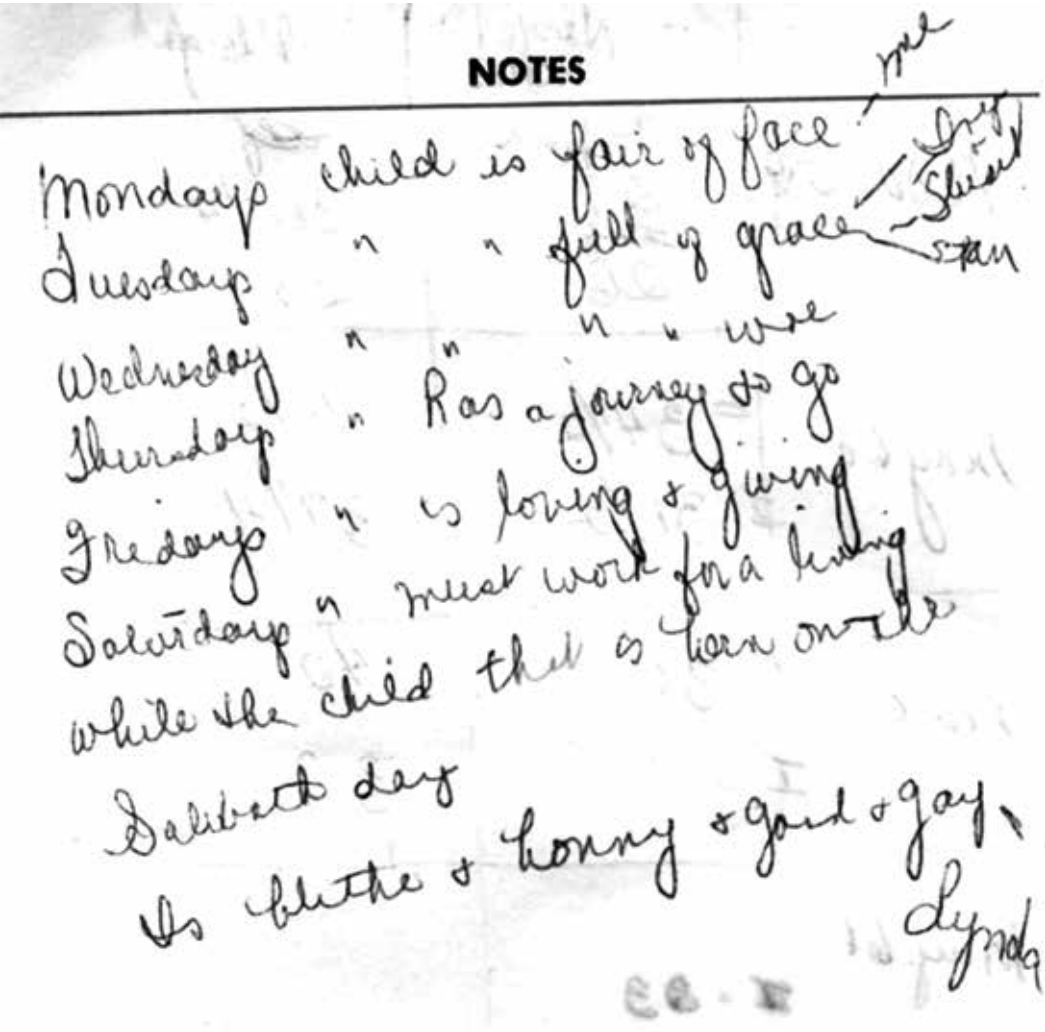 NOTES
me
Mondays child is fair of face
Tuesdays " " full of grace
Stan
Wednesday " " " " woe
Thursdays " Has a journey to go
Fridays " is loving & giving
Saturdays " must work for a living
while the child that is born on the
Sabbath day
Is blithe & bonny & good & gay.
Lynda